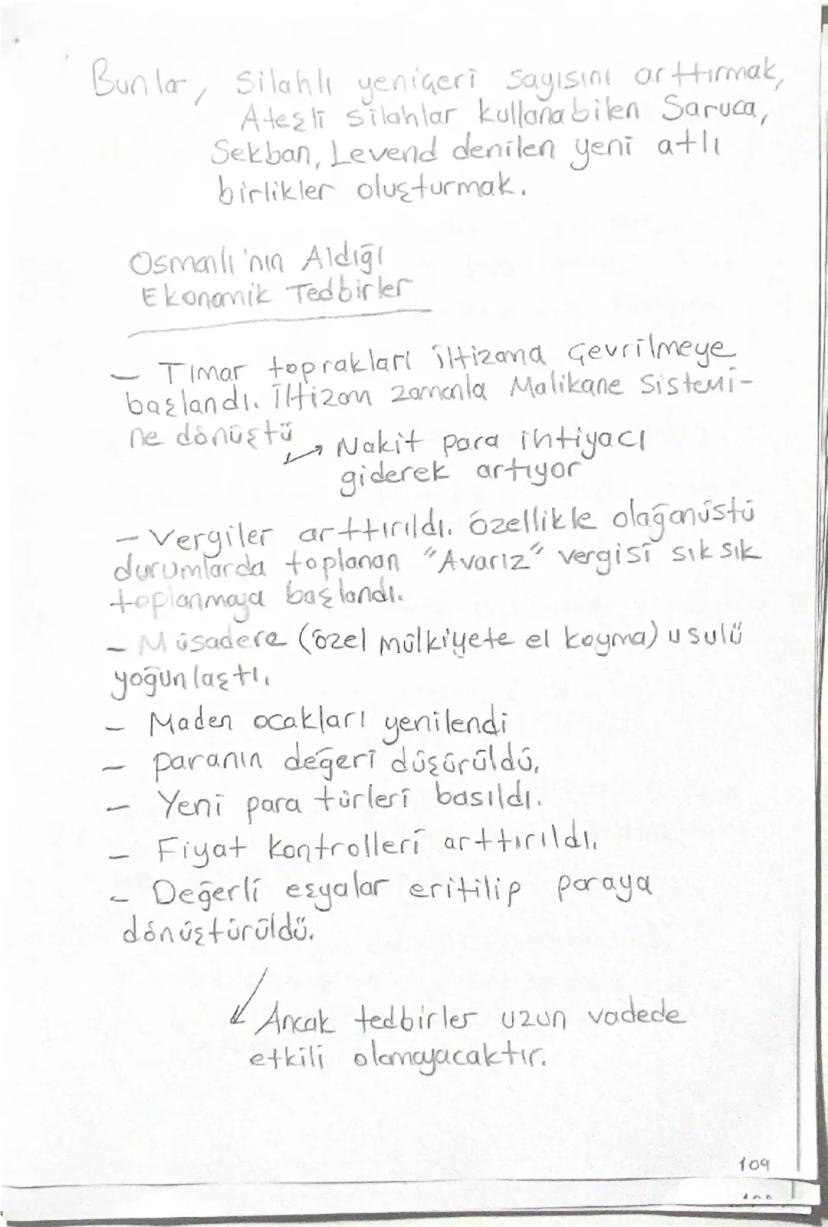 Bunlar, Silahlı yeniçeri sayısını arttırmak,
Ateşli silahlar kullanabilen Saruca,
Sekban, Levend denilen yeni atlı
birlikler oluşturmak.
Osmanlı'nın Aldığı
Ekonomik Tedbirler
- Tımar toprakları iltizama çevrilmeye
başlandı. İltizam zamanla Malikane Sistemi-
ne dönüştü
→ Nakit para ihtiyacı
giderek artıyor
- Vergiler arttırıldı. özellikle olağanüstü
durumlarda toplanan "Avarız" vergisi sık sık
toplanmaya başlandı.
- Müsadere (özel mülkiyete el koyma) usulü
yoğunlaştı.
- Maden ocakları yenilendi
- paranın değeri düşürüldü.
- Yeni para türleri basıldı.
- Fiyat kontrolleri arttırıldı.
- Değerli eşyalar eritilip paraya
dönüştürüldü.
Ancak tedbirler uzun vadede
etkili olamayacaktır.
109